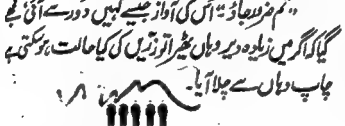 "تم ضرور جاؤ"۔ اس کی آواز جیسے کہیں دور سے آئی مجھے
گیا کہ اگر میں زیادہ دیر وہاں ٹھیرا تو زریں کی کیا حالت ہو سکتی ہے
چاپ وہاں سے چلا آیا۔